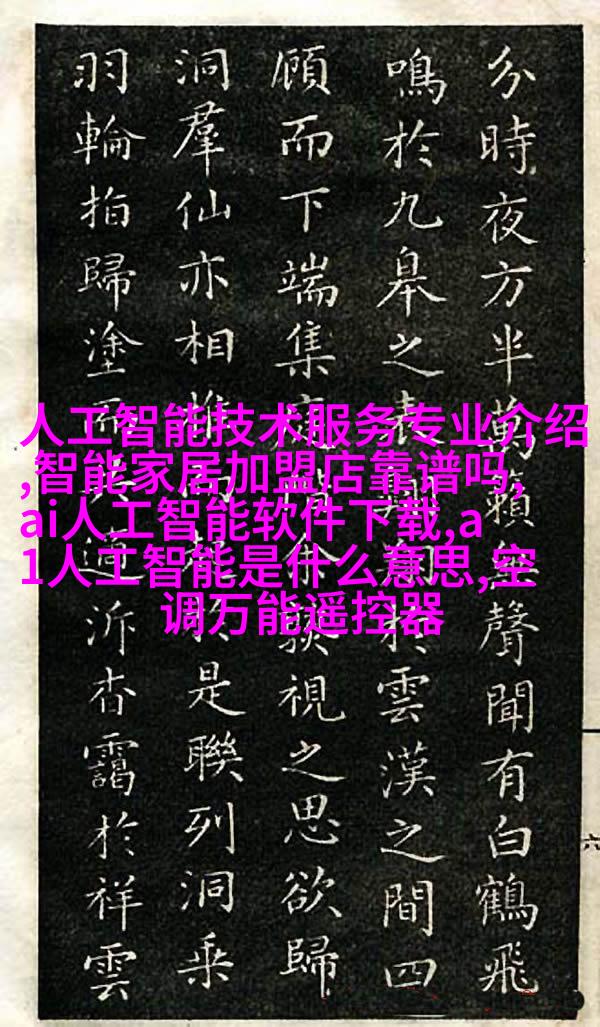 分時夜方半萬籟無聲聞有白鶴飛
鳴於九皋之表翱翔於雲漢之間四
顧而下端集余視之思欲歸
洞羣仙亦相於是聯列洞乘
羽輪拍歸塗而遵泝杳靄於祥雲
人工智能技术服务专业介绍
,智能家居加盟店靠谱吗,
ai人工智能软件下载,a
1人工智能是什么意思,空
调万能遥控器
六